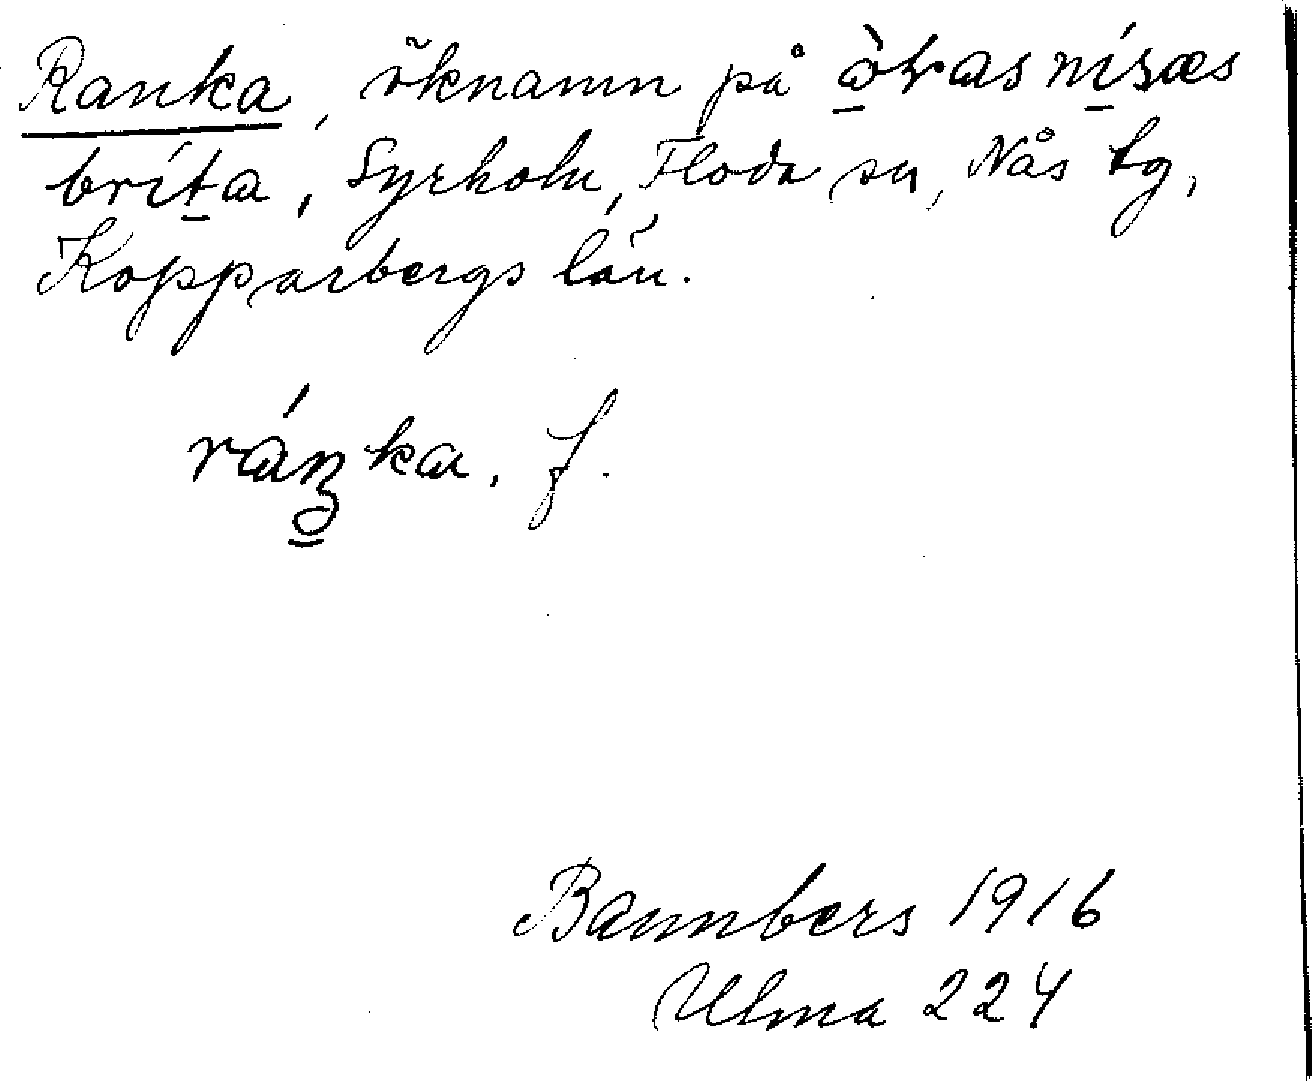 Ranka, öknamn på òkas nísæs
bríta, Syrholn, Floda sn, Nås tg,
Kopparbergs län.
ráŋka. f.
Bannbers 1916
Ulma 224